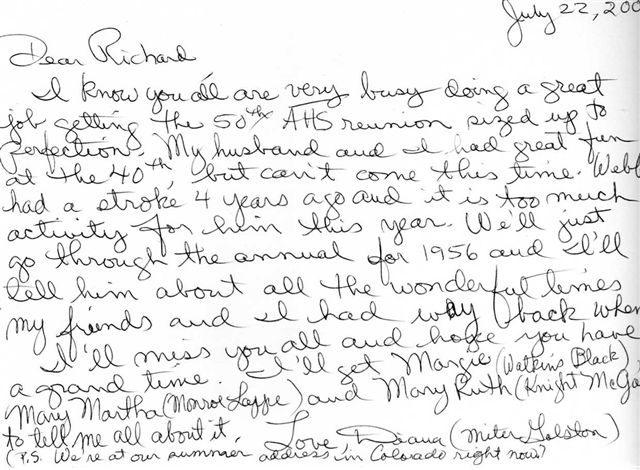 July 22, 200
Dear Richard
I know you all are very busy doing a great
job getting the 50th AHS reunion sized up to
perfection. My husband and I had great fun
at the 40th, but can't come this time. Webb
had a stroke 4 years ago and it is too much
activity for him this year. We'll just
go through the annual for 1956 and I'll
tell him about all the wonderful times
my friends and I had way back when
I'll miss you all and hope you have
a grand time. I'll get Margie (Watkins Black),
Mary Martha (Monroe Lappe) and Mary Ruth (Knight McGa
to tell me all about it. Love Diana (Miter Golston)
(P.S. We're at our summer address in Colorado right now)